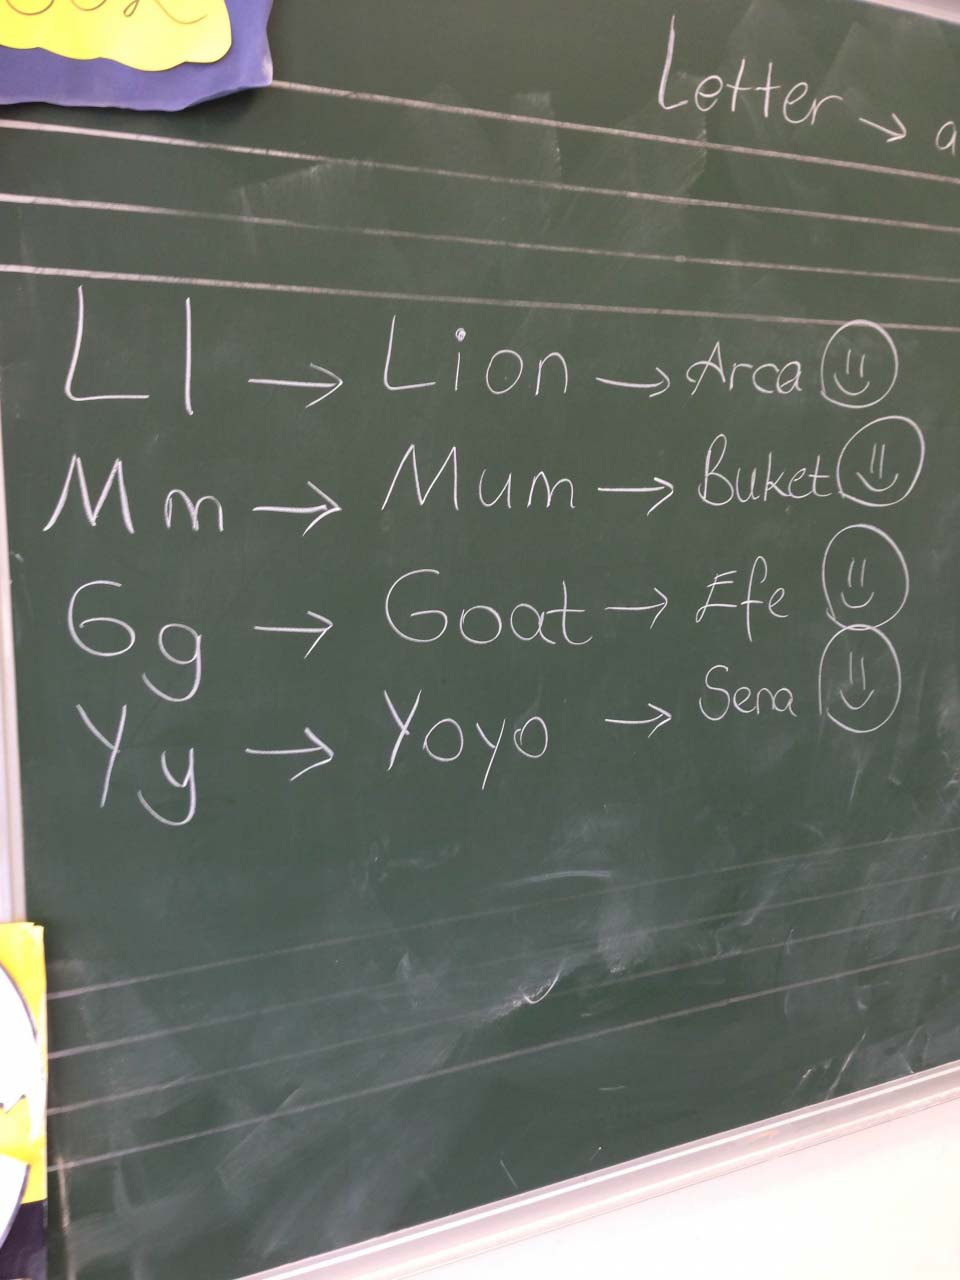 Letter → a
Ll → Lion → Arca
Mm → Mum → Buket
Gg → Goat → Efe
Yy → Yoyo → Sena